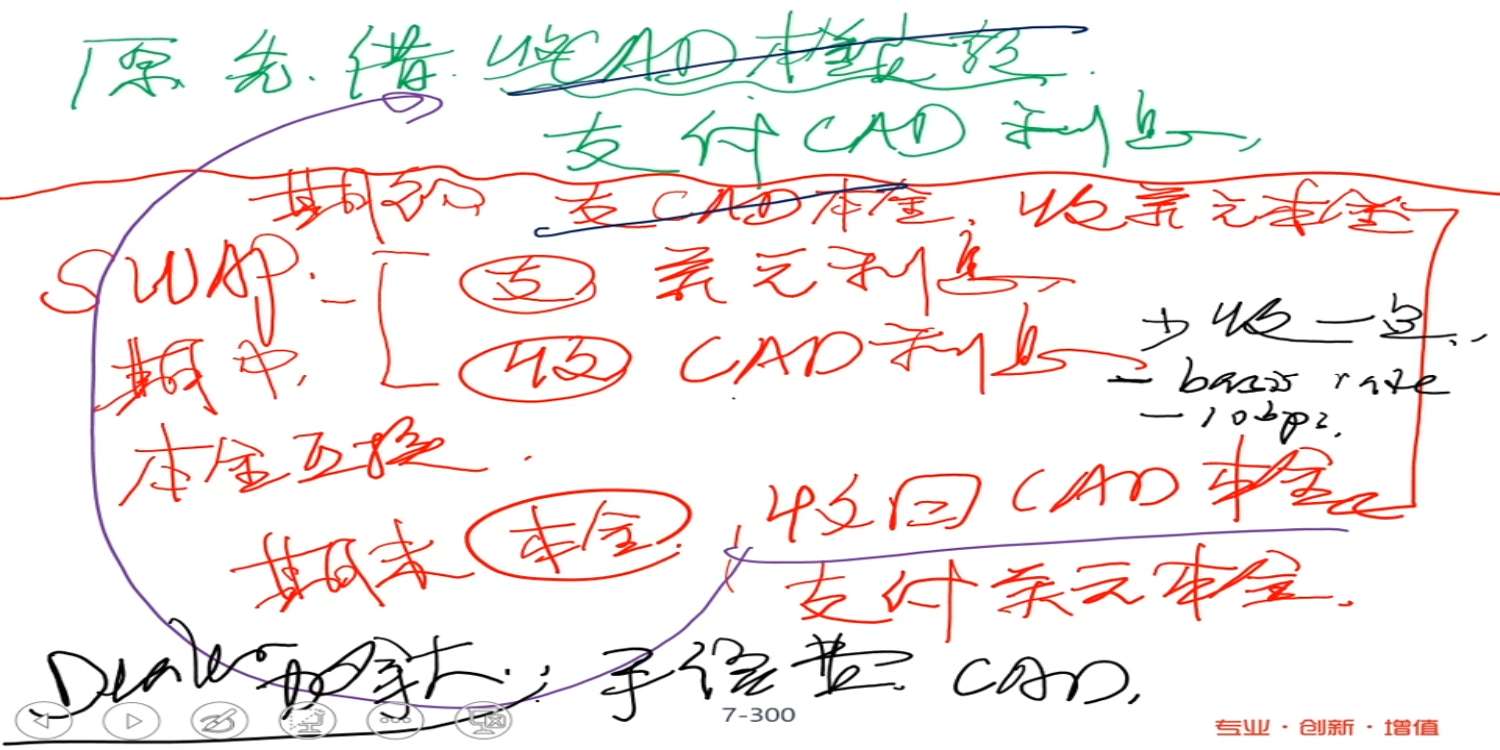 原先借. 收CAD本金
支付CAD利息,
期初 支CAD本金, 收美元本金
SWAP: 支 美元利息,
期中, 收 CAD利息 少收一点..
- basis rate
- 10bps.
本金互换.
期末 本金. 收回CAD本金
支付美元本金.
Dealer 手续费. CAD.
7-300
专业·创新·增值